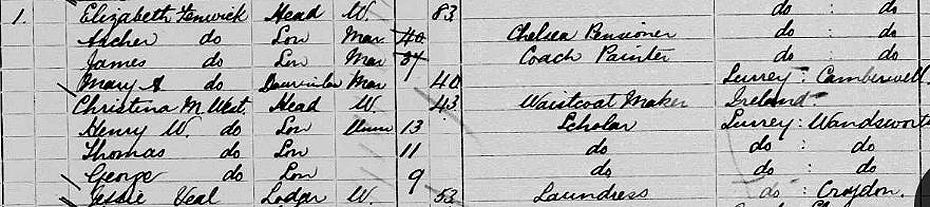 1. Elizabeth Fenwick Head W. 83 do : do
Archer do Son Mar 40 Chelsea Pensioner do : do
James do Son Mar 37 Coach Painter do : do
Mary do Daurinlaw Mar 40 Surrey : Camberwell
Christina M. West. Head W. 43 Waistcoat Maker Ireland
Henry W. do Son Unm 13 Scholar Surrey : Wandswort
Thomas do Son 11 do do : do
George do Son 9 do do : do
Jessie Veal Lodger W. 53 Laundress do : Croydon.